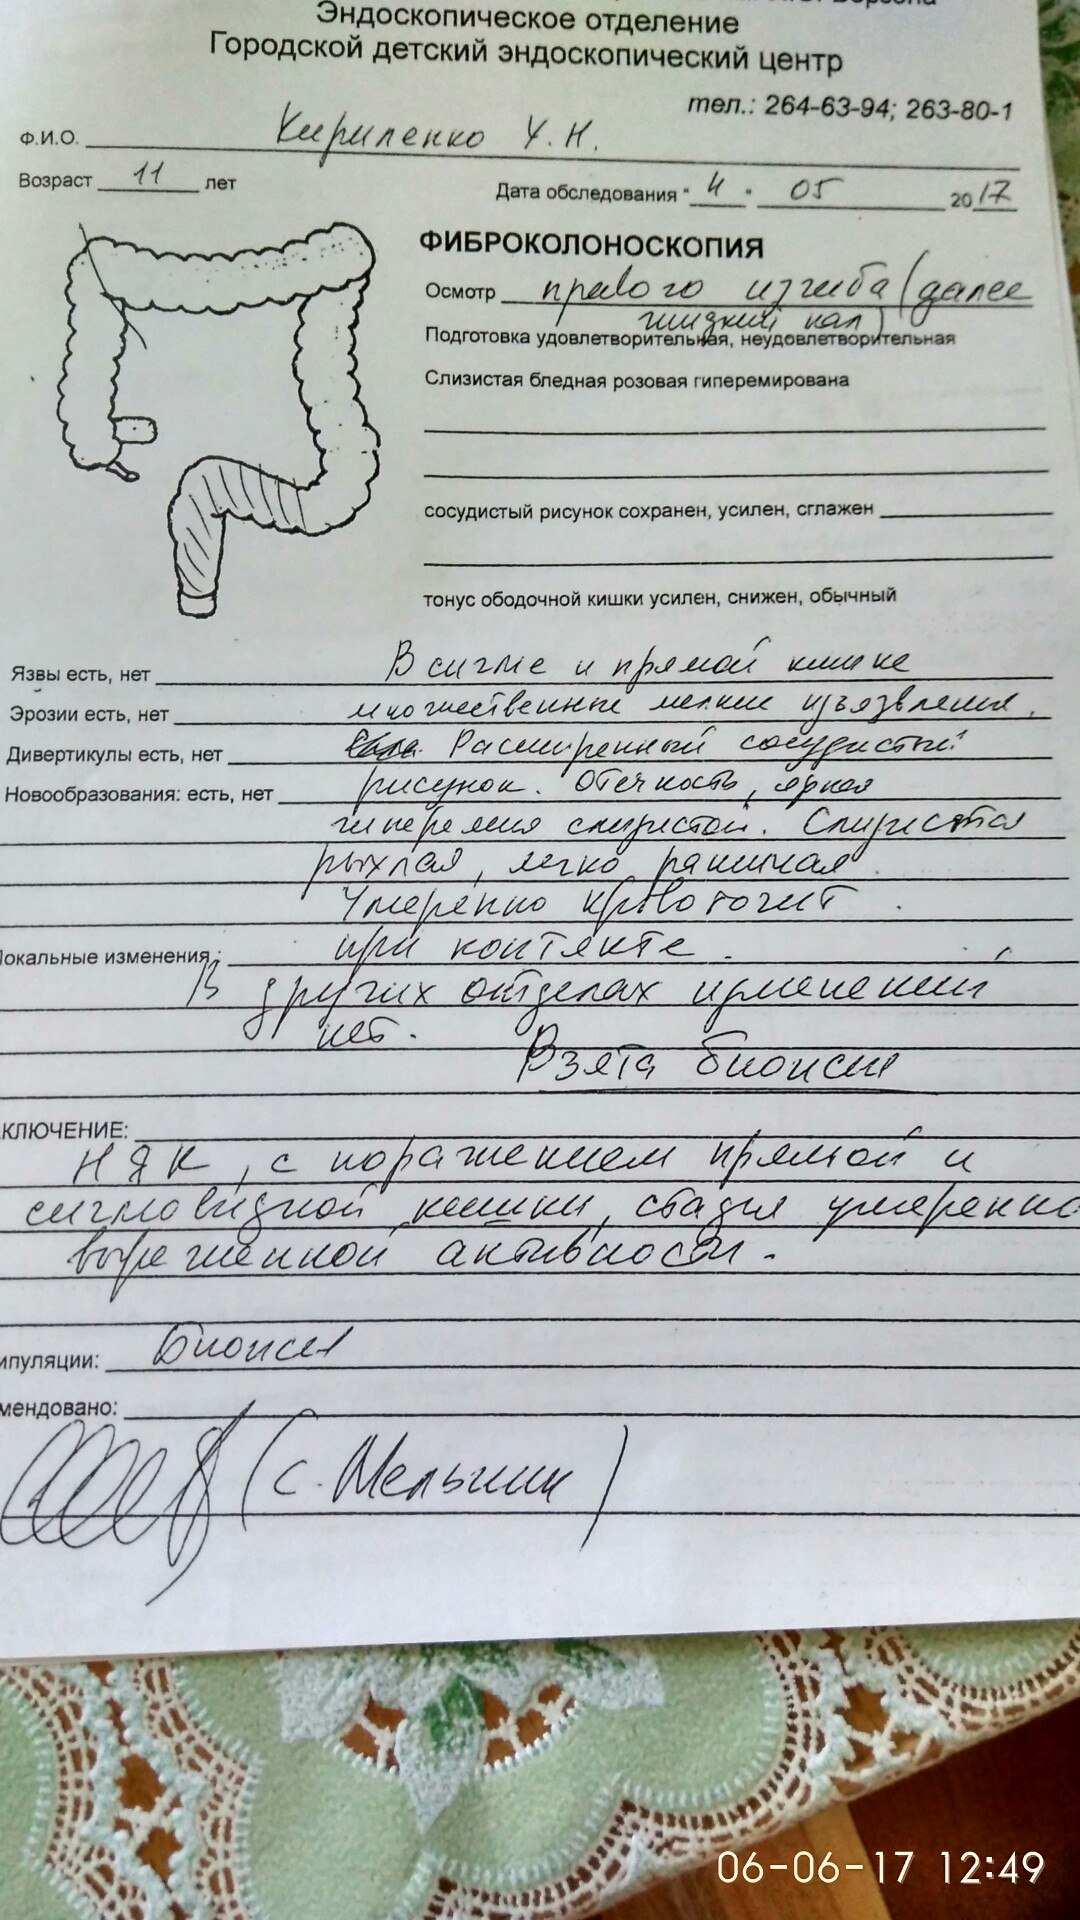 Эндоскопическое отделение
Городской детский эндоскопический центр
тел.: 264-63-94; 263-80-1
Ф.И.О. Кириленко У. Н.
Возраст 11 лет
Дата обследования " 4 " 05 2017
ФИБРОКОЛОНОСКОПИЯ
Осмотр правого изгиба (далее
жидкий кал)
Подготовка удовлетворительная, неудовлетворительная
Слизистая бледная розовая гиперемирована
сосудистый рисунок сохранен, усилен, сглажен
тонус ободочной кишки усилен, снижен, обычный
Язвы есть, нет В сигме и прямой кишке
Эрозии есть, нет множественные мелкие изъязвления.
Дивертикулы есть, нет Расширенный сосудистый
Новообразования: есть, нет рисунок. Отечность, яркая
гиперемия слизистой. Слизистая
рыхлая, легко ранимая.
Умеренно кровоточит
Локальные изменения: при контакте.
В других отделах изменений
нет.
Взята биопсия
КЛЮЧЕНИЕ:
НЯК, с поражением прямой и
сигмовидной кишки, стадия умеренно
выраженной активности.
ипуляции: Биопсия
мендовано:
(С. Мельник)
06-06-17 12:49